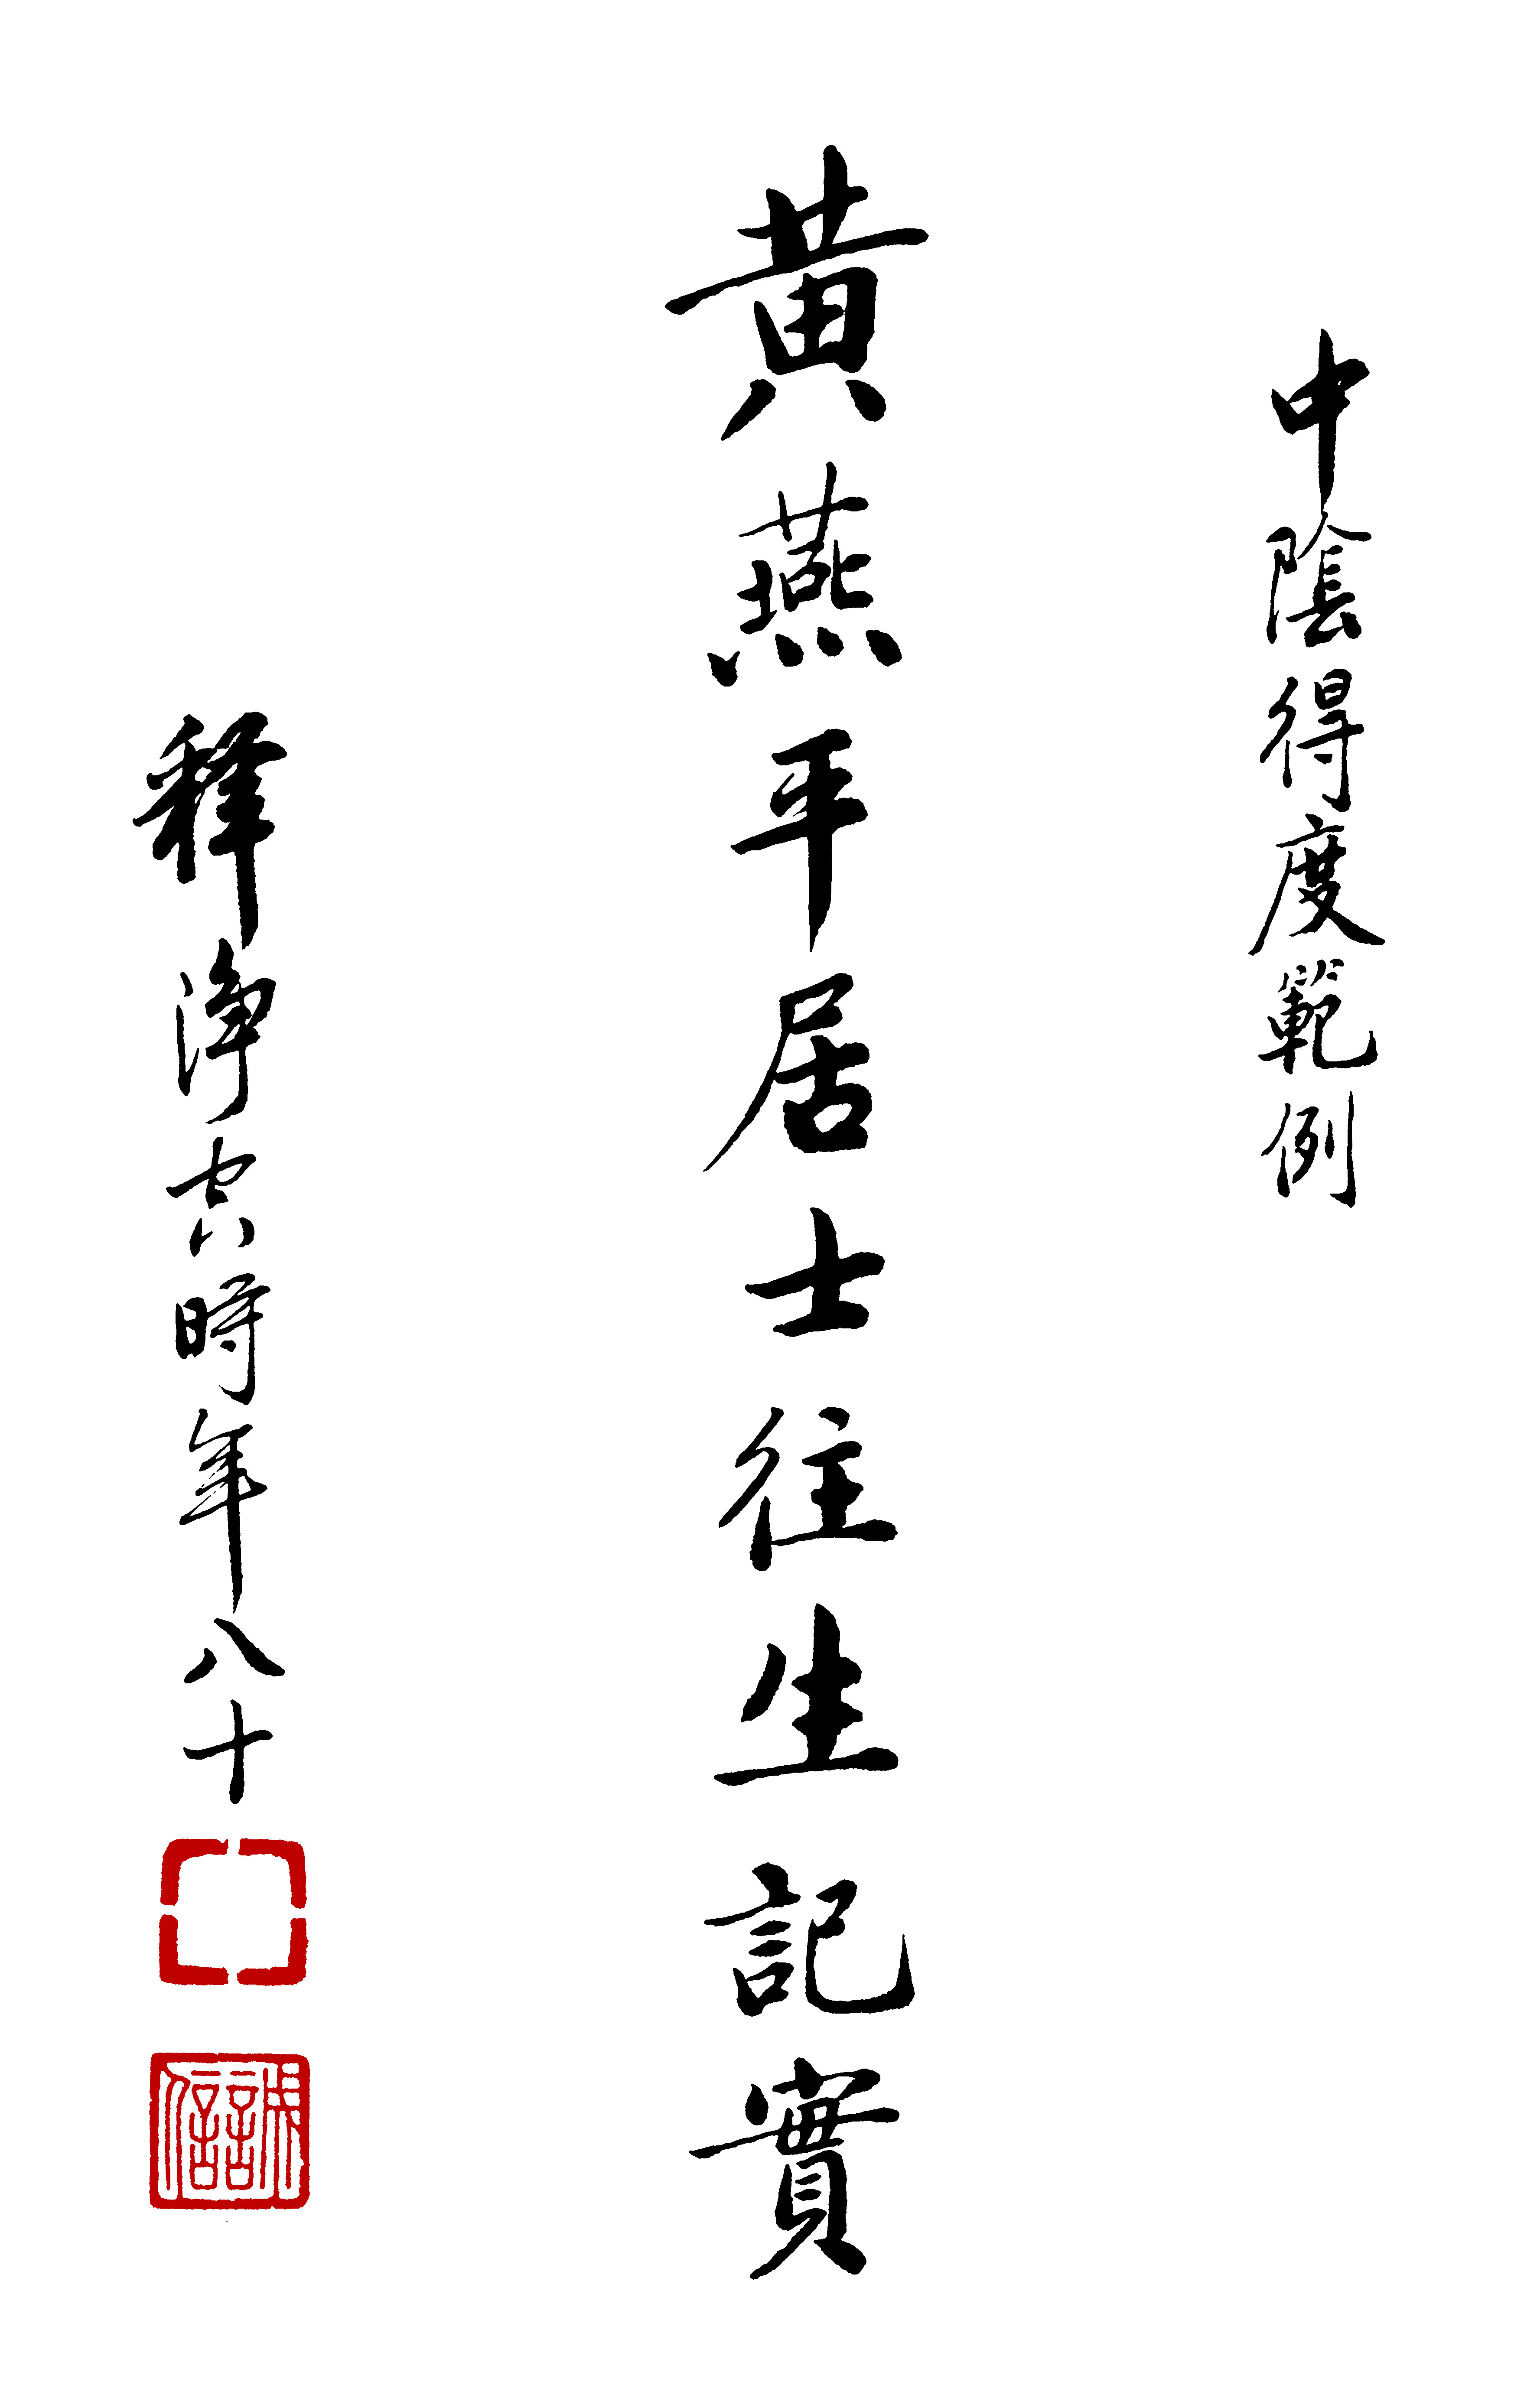 中陰得度範例
黃燕平居士往生記實
釋淨空時年八十